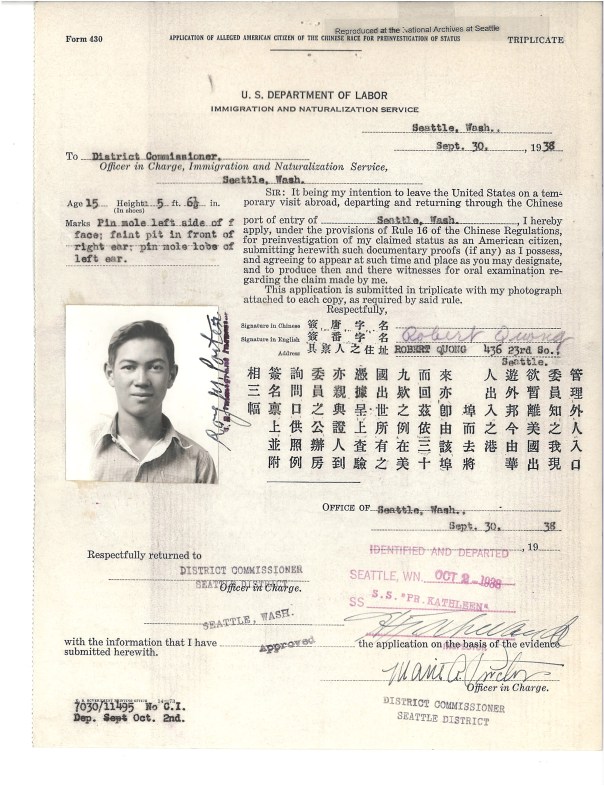 Reproduced at the National Archives at Seattle
Form 430
APPLICATION OF ALLEGED AMERICAN CITIZEN OF THE CHINESE RACE FOR PREINVESTIGATION OF STATUS
TRIPLICATE
U. S. DEPARTMENT OF LABOR
IMMIGRATION AND NATURALIZATION SERVICE
Seattle, Wash.,
Sept. 30, 1938
To District Commissioner,
Officer in Charge, Immigration and Naturalization Service,
Seattle, Wash.
Age 15 Height 5 ft. 6½ in.
(In shoes)
Marks Pin mole left side of f
face; faint pit in front of
right ear; pin mole lobe of
left ear.
SIR: It being my intention to leave the United States on a tem-
porary visit abroad, departing and returning through the Chinese
port of entry of Seattle, Wash., I hereby
apply, under the provisions of Rule 16 of the Chinese Regulations,
for preinvestigation of my claimed status as an American citizen,
submitting herewith such documentary proofs (if any) as I possess,
and agreeing to appear at such time and place as you may designate,
and to produce then and there witnesses for oral examination re-
garding the claim made by me.
This application is submitted in triplicate with my photograph
attached to each copy, as required by said rule.
Respectfully,
Signature in Chinese 簽唐字名
Signature in English 簽番字名 Robert Quong
Address 具稟人之住址 ROBERT QUONG 436 23rd So.,
Seattle.
管理外人入口
委員知我現
欲暫離美國出
遊外邦今由華
人出入之港
埠而去將
來亦卽由該埠
而回茲依三十
九欵之例在美
國出世所有之
憑據呈上查驗
亦親與證人到
委員之公辦房
詢問口供照例
簽名稟上並附
相三幅
OFFICE OF Seattle, Wash.,
Sept. 30. 38
, 19
Respectfully returned to
DISTRICT COMMISSIONER
SEATTLE DISTRICT
Officer in Charge.
SEATTLE, WASH.
IDENTIFIED AND DEPARTED
SEATTLE, WN. OCT 2 - 1938
SS S.S. "PR. KATHLEEN"
with the information that I have approved the application on the basis of the evidence
submitted herewith.
Officer in Charge.
DISTRICT COMMISSIONER
SEATTLE DISTRICT
7030/11495 No C.I.
Dep. Sept Oct. 2nd.